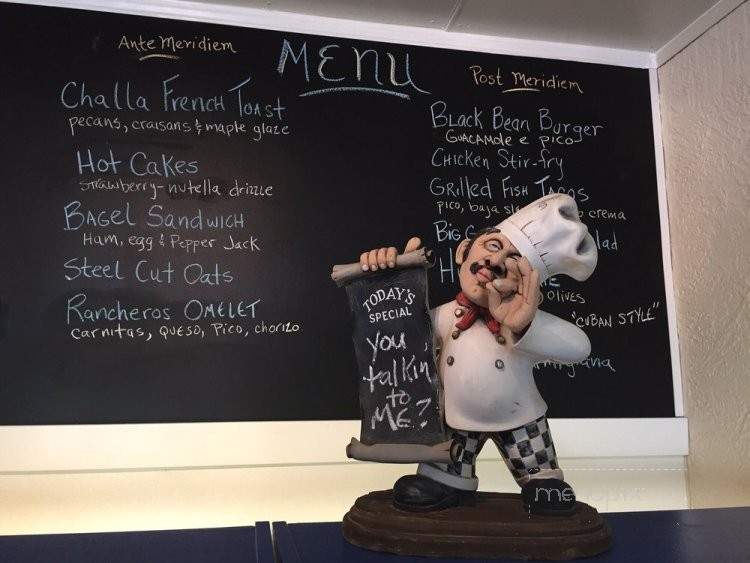 MENU
Ante Meridiem
Challa French Toast
pecans, craisans & maple glaze
Hot Cakes
strawberry-nutella drizzle
Bagel Sandwich
Ham, egg & Pepper Jack
Steel Cut Oats
Rancheros OMELET
carnitas, QUESO, Pico, chorizo
Post Meridiem
Black Bean Burger
GUACAMOLE e PICO
Chicken Stir-fry
Grilled Fish Tacos
pico, baja crema
Big
OLIVES
"CUBAN STYLE"
TODAY'S
SPECIAL
You
talkin
to
ME?